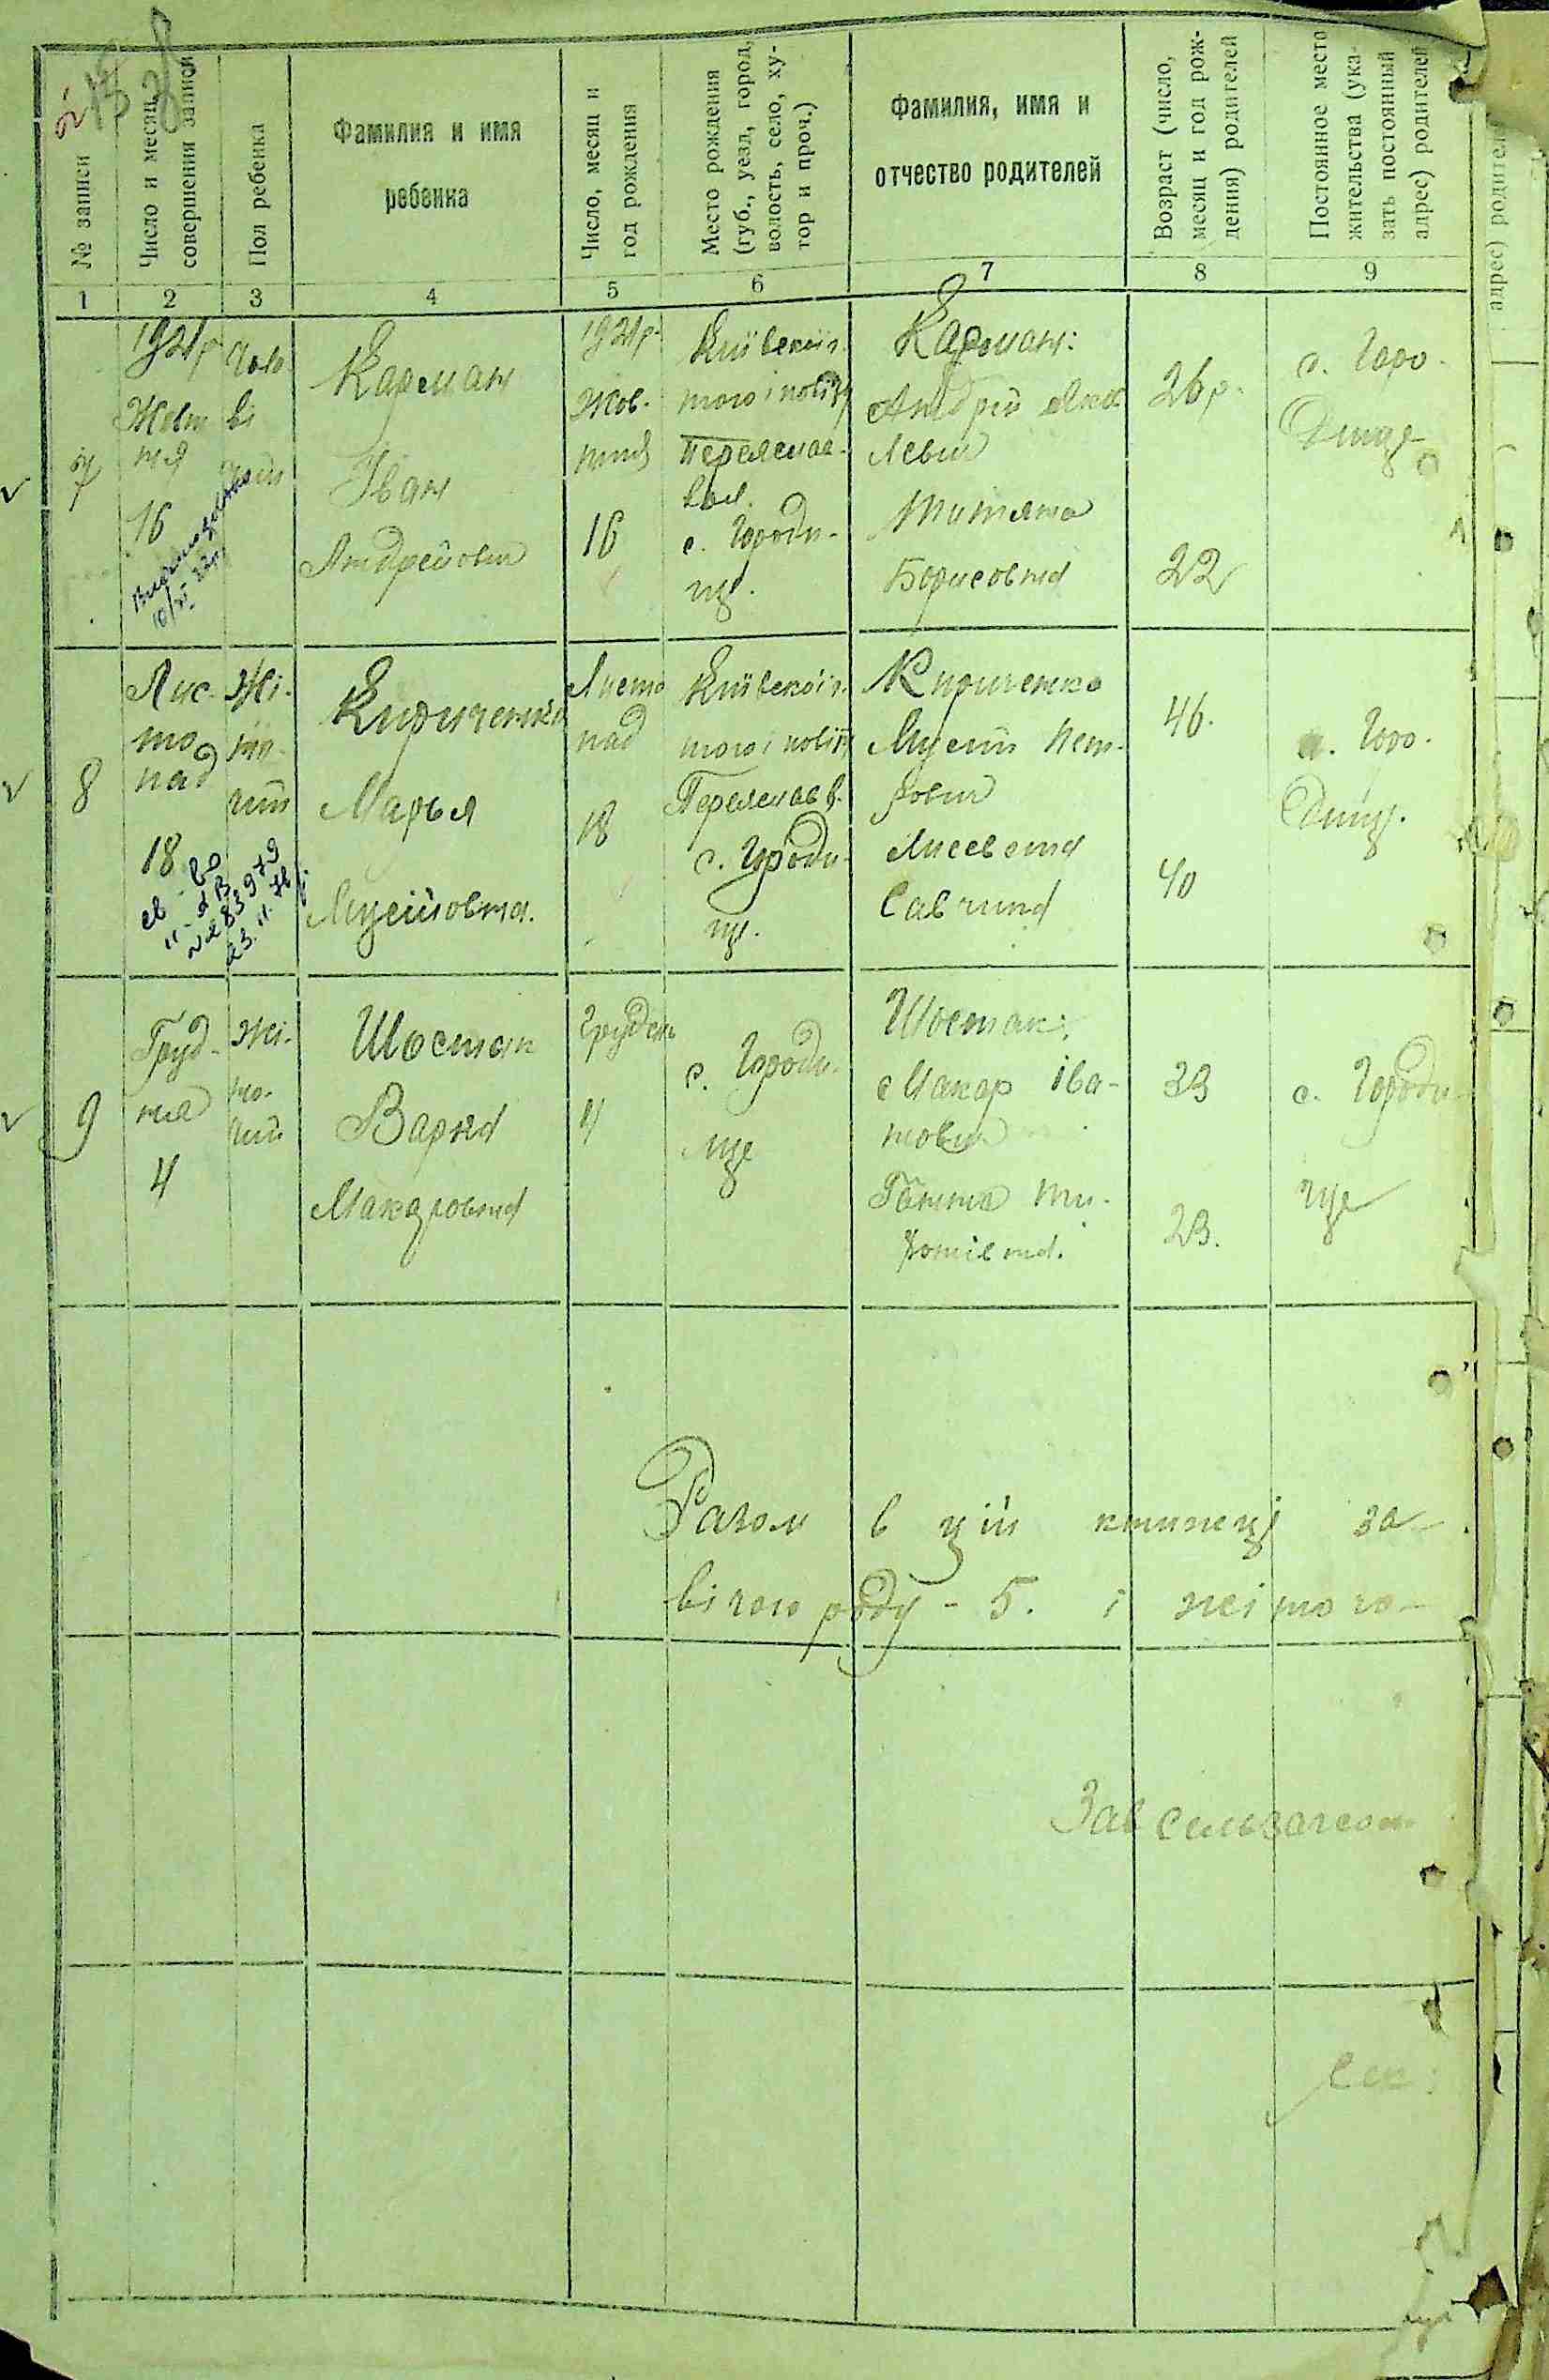 № записи
Число и месяц
совершения записи
Пол ребенка
Фамилия и имя
ребенка
Число, месяц и
год рождения
Место рождения
(губ., уезд, город,
волость, село, ху-
тор и проч.)
Фамилия, имя и
отчество родителей
Возраст (число,
месяц и год рож-
дения) родителей
Постоянное место
жительства (ука-
зать постоянный
адрес) родителей
адрес) родителей
1
2
3
4
5
6
7
8
9
7
1921р.
Жовт
ня
16
Чоло
ві
чий
Карман
Іван
Андрейович
1921р.
Жов-
тня
16
Київскої г.
того і повіту
Переяслав.
вол.
с. Городи-
ще.
Карман:
Андрій Яко
левич
Титяна
Борисовна
26 р.
22
с. Горо-
дище
8
Лис-
то
пад
18
Жі-
но-
чий
Кириченко
Марья
Мусійовна.
Листо
пад
18
Київскої г.
того і повіту
Переяслав в.
с. Городи-
ще.
Кириченко
Мусій Пет-
рович
Лисевета
Савчина
46.
40
с. Горо-
дищ.
9
Груд-
ня
4
Жі-
но-
чий
Шостак
Варка
Макаровна
Грудень
4
с. Городи-
ще
Шостак:
Макар Іва-
нович
Ганна Ти-
33
23.
с. Городи-
ще
Разом в цій книжеці за-
вічого роду - 5. і жіночо-
Зав
Сек.